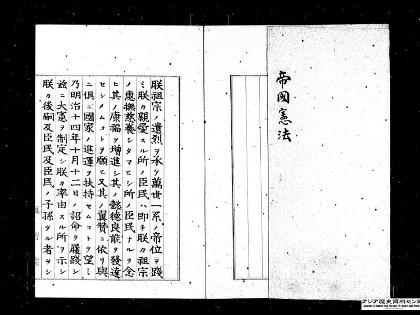 帝國憲法
朕祖宗ノ遺烈ヲ承ケ萬世一系ノ帝位ヲ踐
ミ朕カ親愛スル所ノ臣民ハ即チ朕カ祖宗
ノ惠撫慈養シタマヒシ所ノ臣民ナルヲ念
ヒ其ノ康福ヲ增進シ其ノ懿德良能ヲ發達
セシメムコトヲ願ヒ又其ノ翼贊ニ依リ與
ニ俱ニ國家ノ進運ヲ扶持セムコトヲ望ミ
乃明治十四年十月十二日ノ詔命ヲ履踐シ
茲ニ大憲ヲ制定シ朕カ率由スル所ヲ示シ
朕カ後嗣及臣民及臣民ノ子孫タル者ヲシ
アジア歴史資料センター